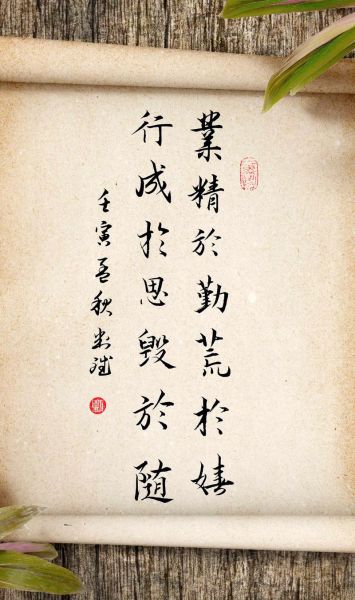 業精於勤荒於嬉
行成於思毀於随
壬寅孟秋